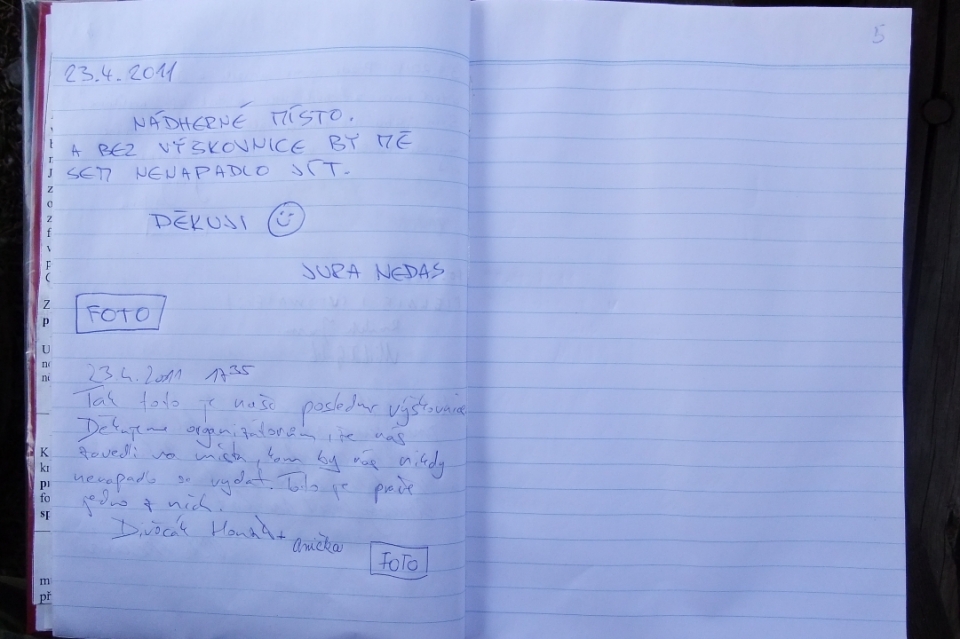 5
23.4.2011
NÁDHERNÉ MÍSTO.
A BEZ VÝŠKOVNICE BY MĚ
SEM NENAPADLO JÍT.
DĚKUJI
JURA NEDAS
FOTO
23.4.2011 17³⁵
Tak toto je naše poslední výškovnice
Děkujeme organizátorům, že nás
zavedli na místa, kam by nás nikdy
nenapadlo se vydat. Toto je právě
jedno z nich.
Divočák Honza + Anička
FOTO